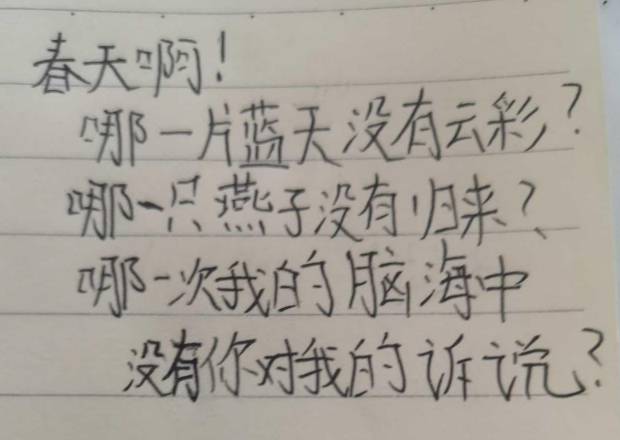 春天啊!
哪一片蓝天没有云彩?
哪一只燕子没有归来?
哪一次我的脑海中
没有你对我的诉说?